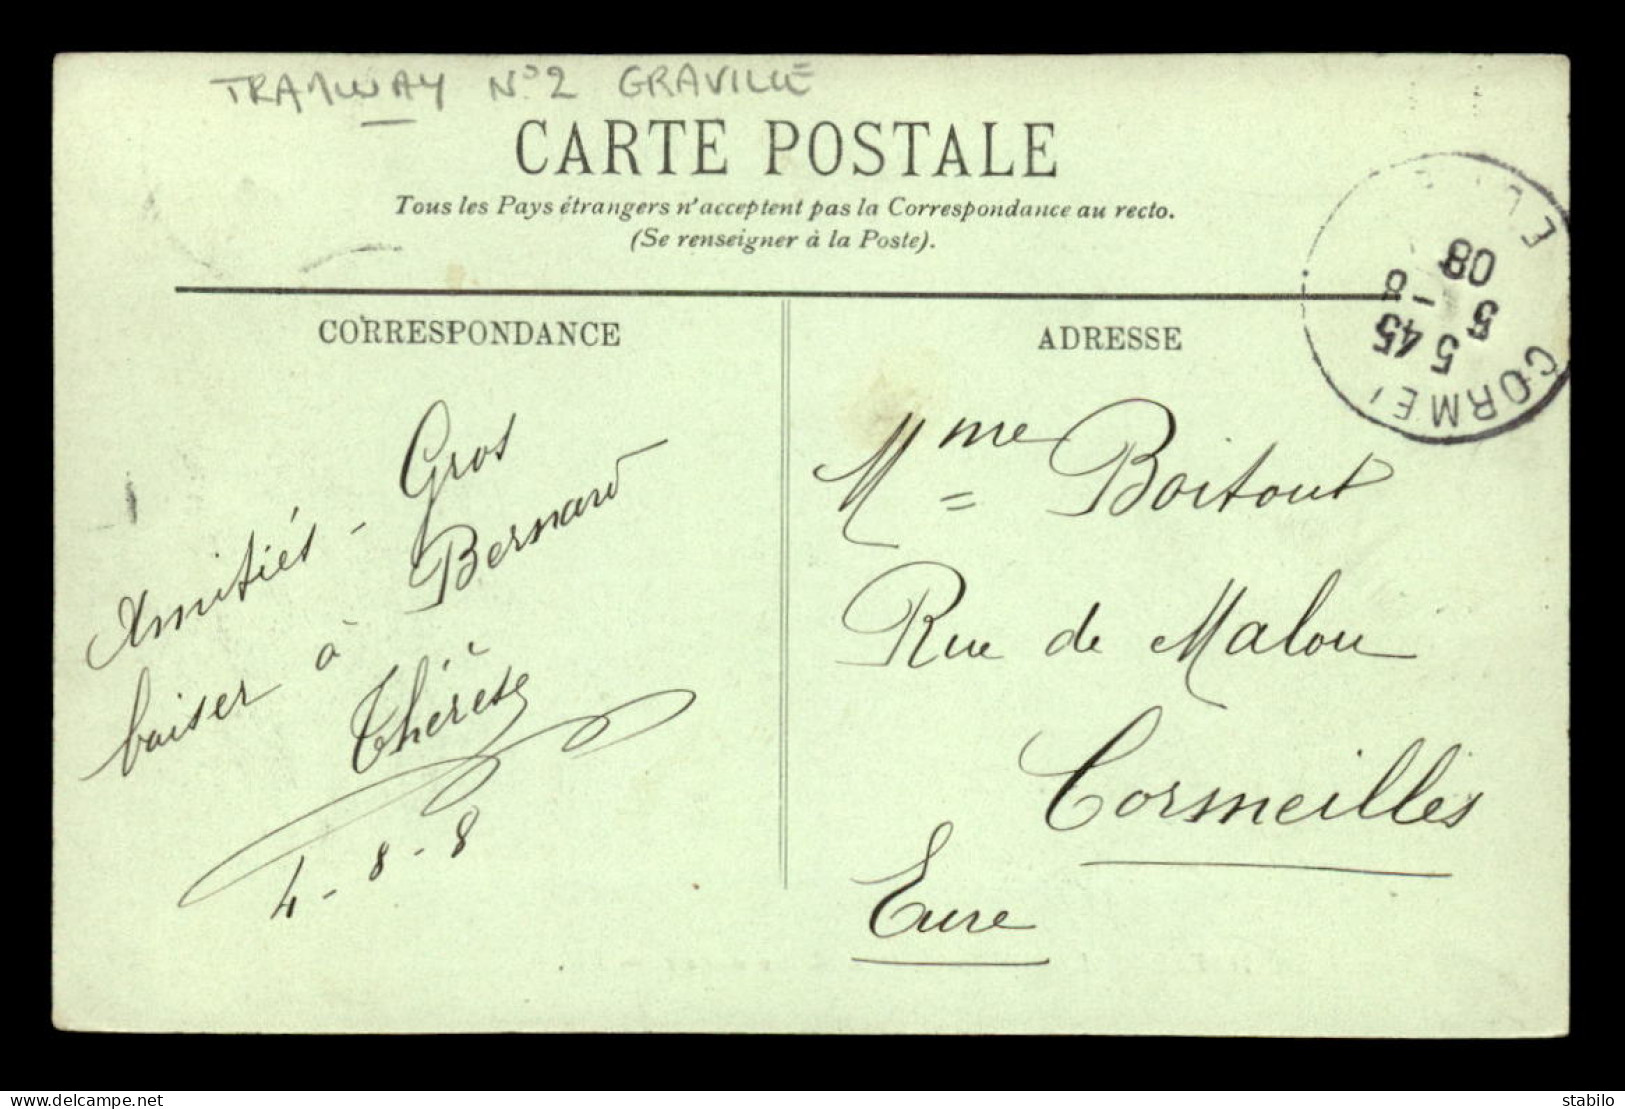 TRAMWAY N°2 GRAVILLE
CARTE POSTALE
Tous les Pays étrangers n'acceptent pas la Correspondance au recto.
(Se renseigner à la Poste).
CORRESPONDANCE
Amitiés - Gros
baiser à Bernard
Thérèse
4-8-8
ADRESSE
Mme Boitout
Rue de Malou
Cormeilles
Eure
CORMEI
5 45
5 -8
08
E
delcampe.net
stabilo